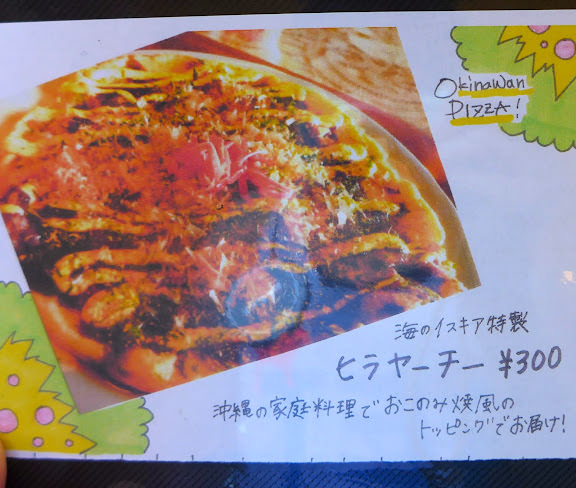 Okinawan
PIZZA!
海のイスキア特製
ヒラヤーチー ¥300
沖縄の家庭料理でおこのみ焼風の
トッピングでお届け!